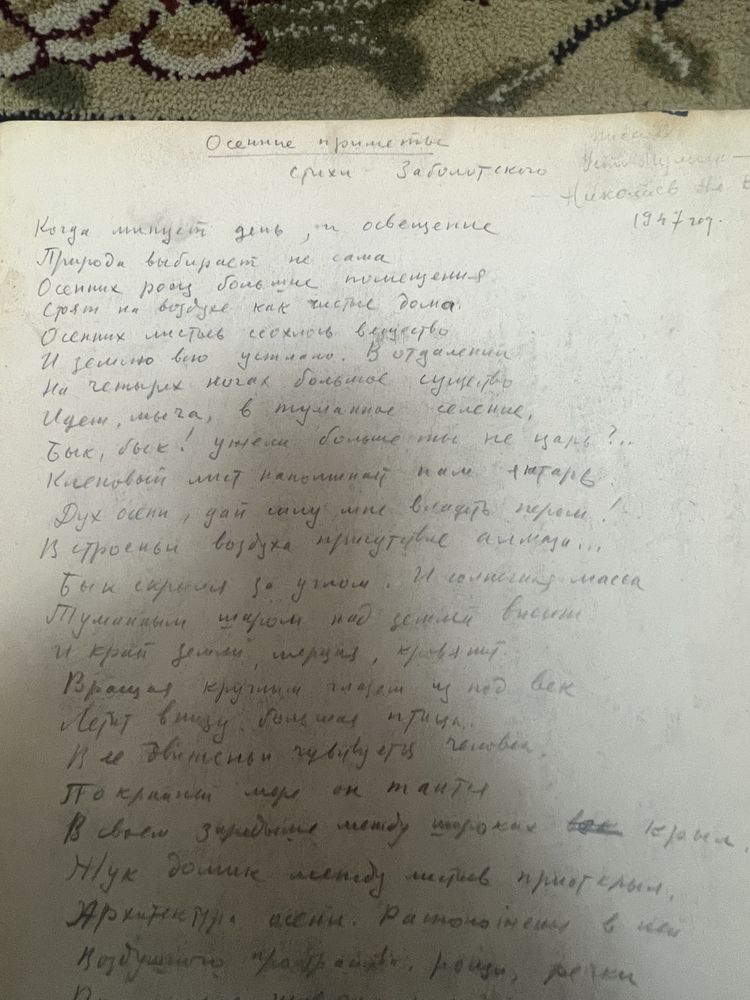 Осенние приметы
стихи Заболотского
писал
Николаев
1947 год.
Когда минует день, и освещение
Природа выбирает не сама
Осенних рощ большие помещения
Стоят на воздухе как чистые дома.
Осенних листьев ссохлось вещество
И землю всю устлало. В отдалении
На четырех ногах большое существо
Идет, мыча, в туманное селение,
Бык, бык! ужели больше ты не царь?..
Кленовый лист напоминает нам янтарь.
Дух осени, дай силу мне владеть пером!
В строеньи воздуха присутствие алмаза...
Бык скрылся за углом. И солнечная масса
Туманным шаром над землей висит
И край земли, мерцая, кровянит.
Вращая круглым глазом из под век
Летит внизу большая птица.
В ее движеньи чувствуется человек.
По крайней мере он таится
В своем зародыше между широких крыл.
Жук домик между листьев приоткрыл.
Архитектура осени. Расположенье в ней
Воздушного пространства, рощи, речки